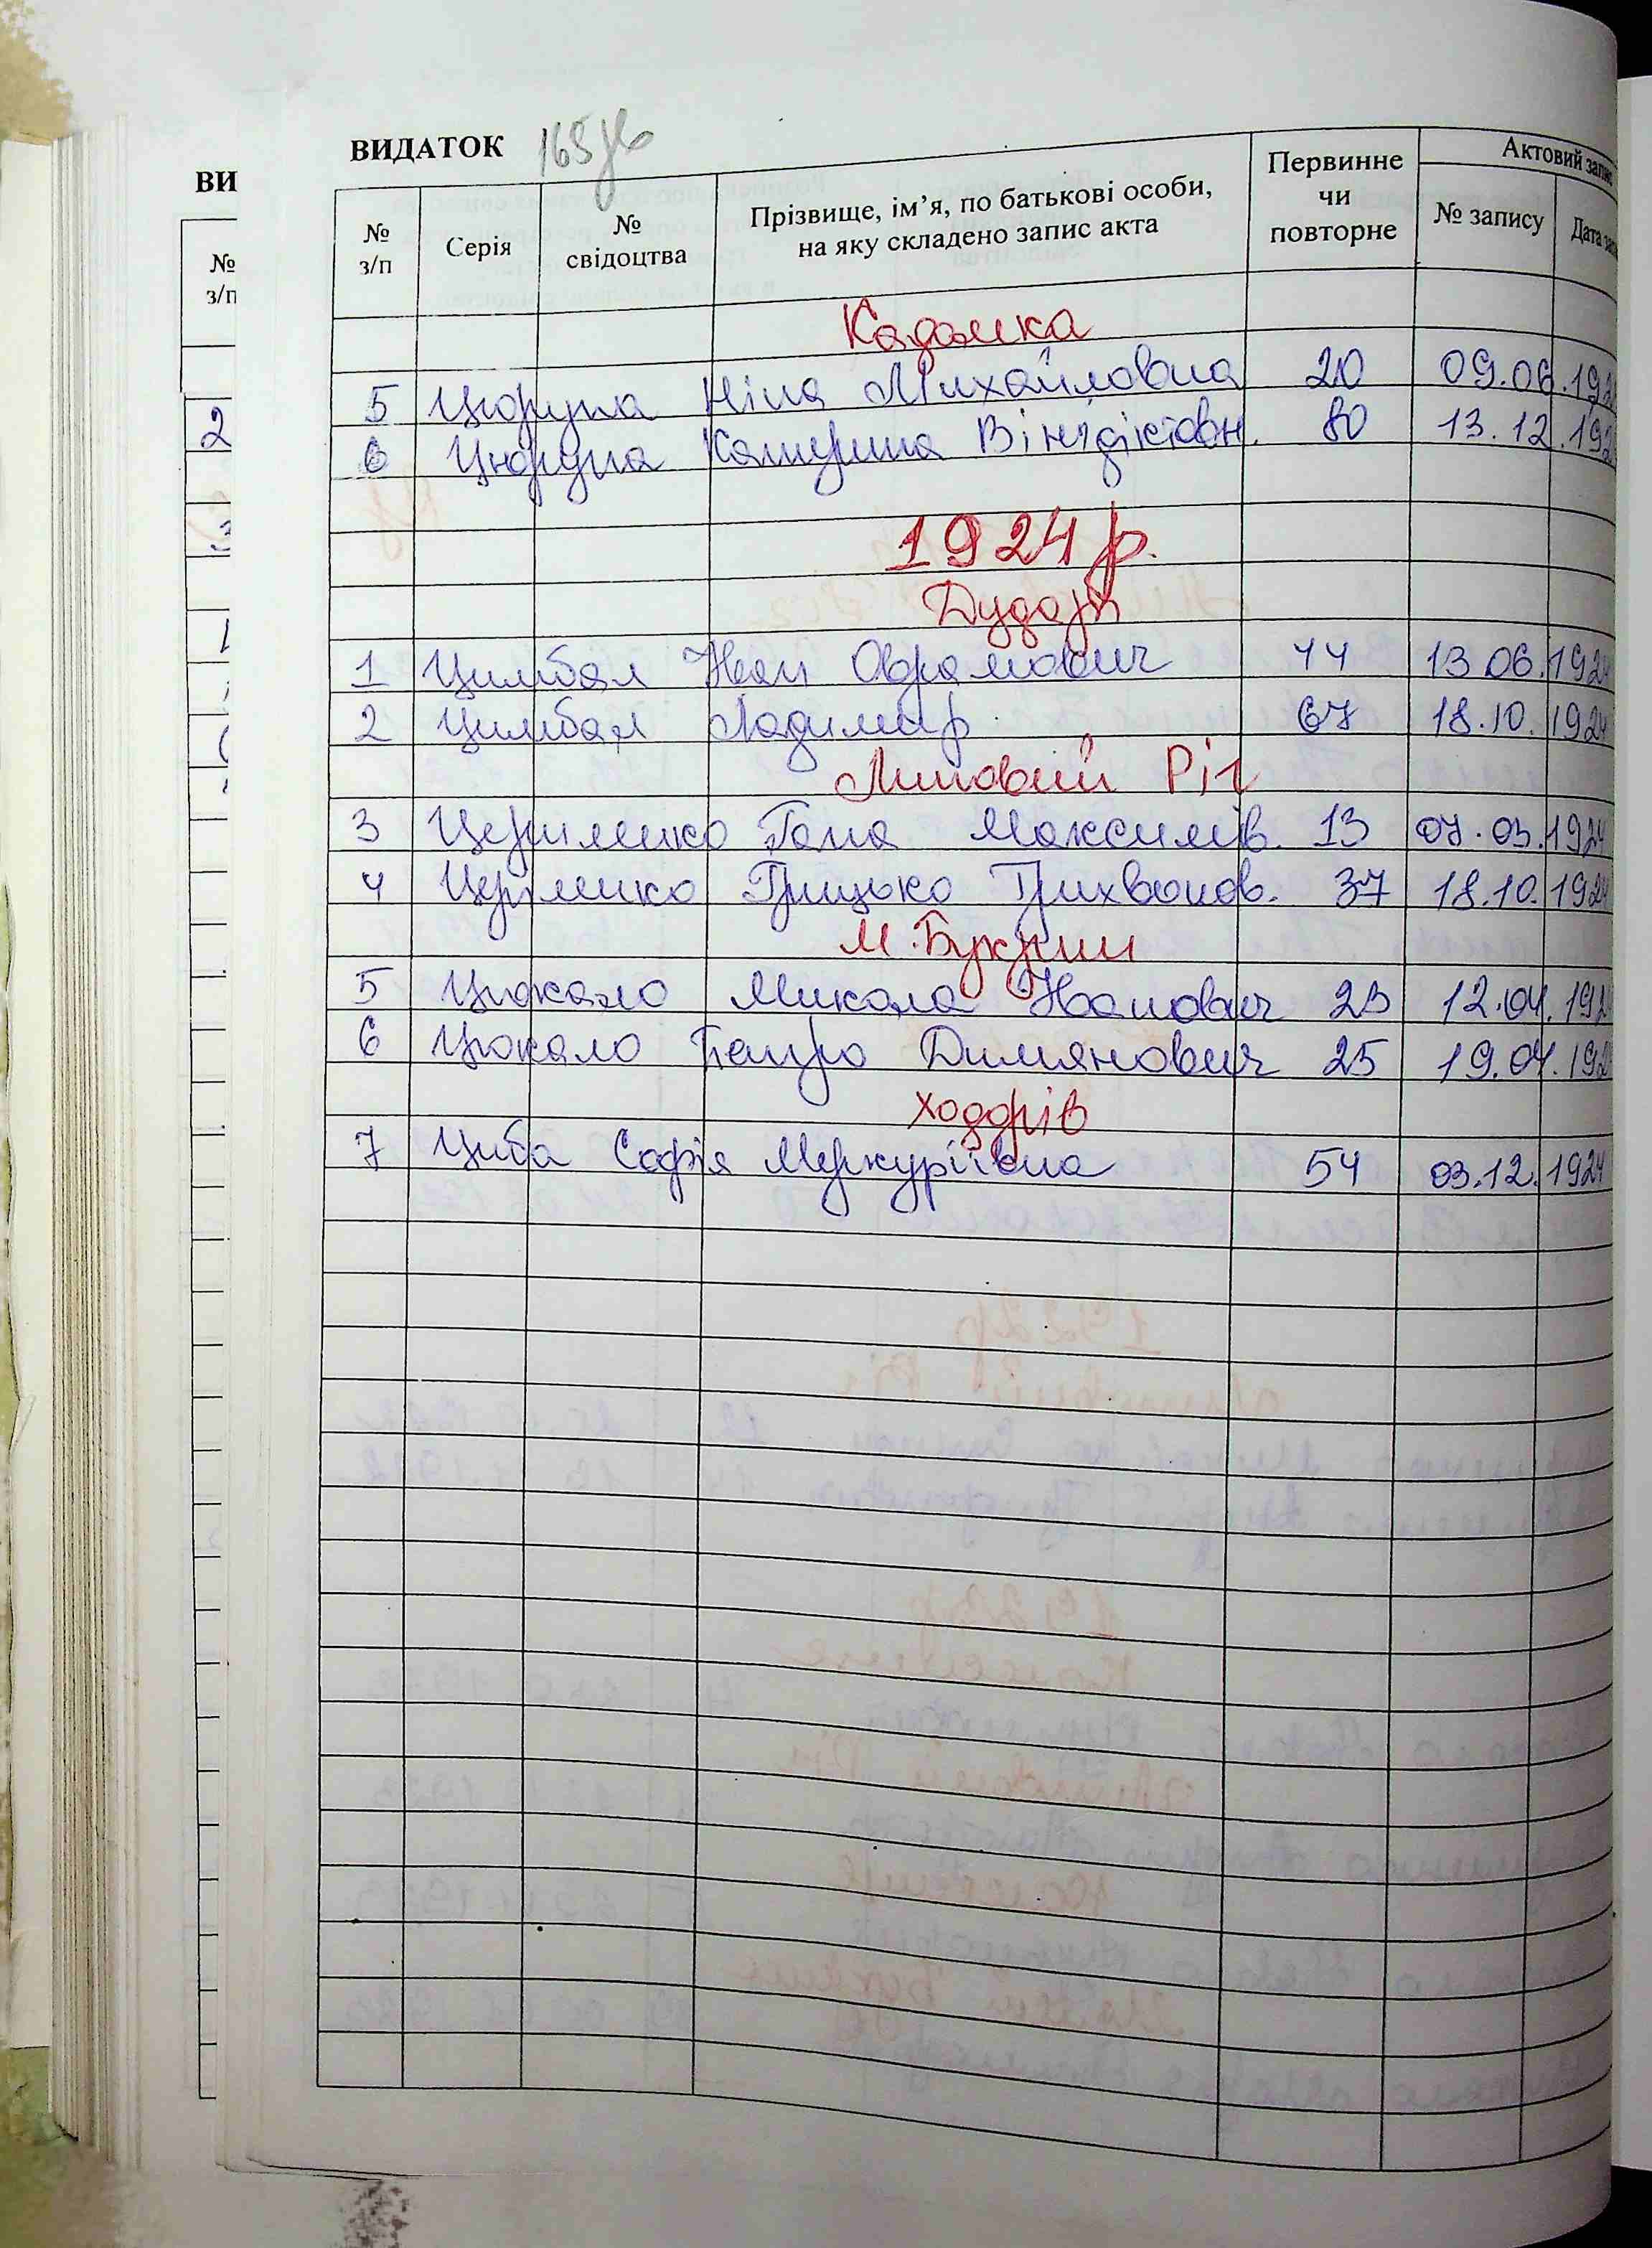 ВИДАТОК 165
ВИ
№ з/п
Серія
№ свідоцтва
Прізвище, ім’я, по батькові особи, на яку складено запис акта
Первинне чи повторне
Актовий запис
№ запису
Дата
№
з/п
Кадомка
5 Цюрупа Ніна Михайловна 20 09.06.192
6 Цюрупа Катерина Вінідіктовн. 80 13.12.192
1924 р.
Дударі
1 Цимбал Іван Оврамович 44 13 06.1924
2 Цимбал Ладимир 67 18.10.1924
Липовий Ріг
3 Цериленко Ганна Максимів. 13 07.03.1924
4 Церіленко Грицько Трихвонов. 37 18.10.1924
М.Букрин
5 Цюкало Микола Іванович 23 12.04.192
6 Цюкало Петро Димянович 25 19.04.192
Ходорів
7 Циба Софія Меркуріївна 54 03.12.1924
2